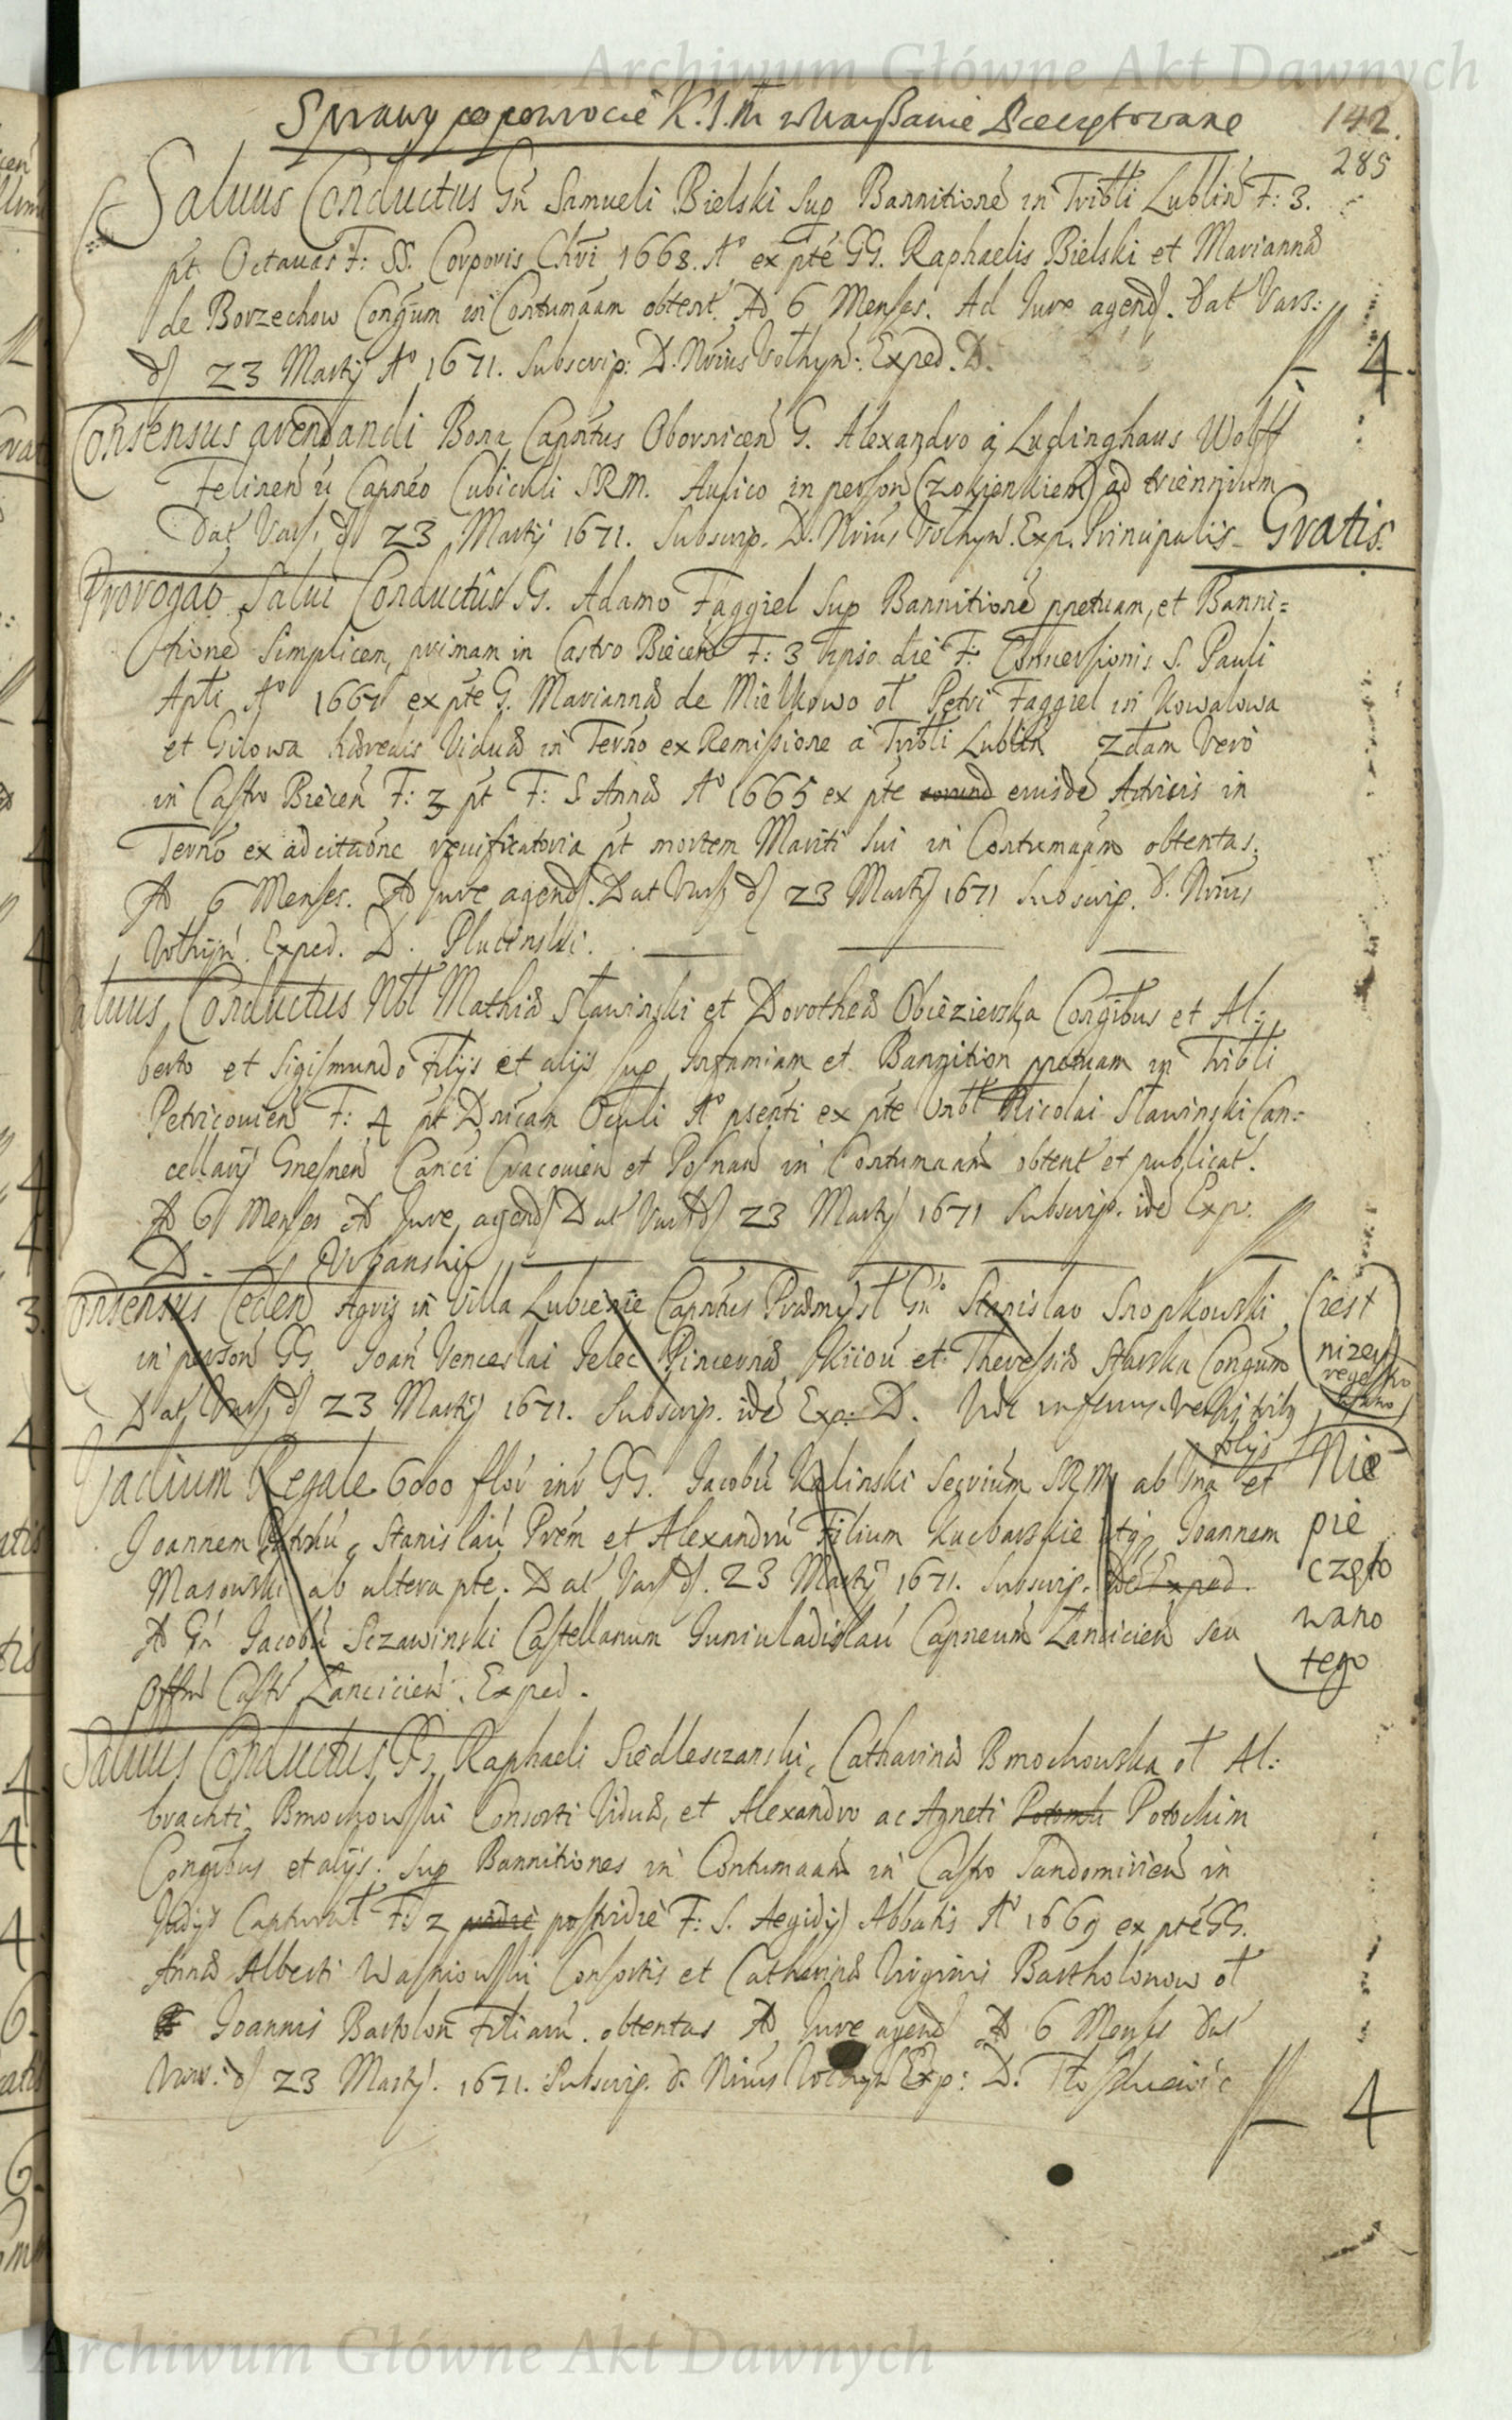 Archiwum Główne Akt Dawnych
Sprawy po powrocie K.J.M. w Warszawie Pieczętowane
142.
285
Saluus Conductus Gn Samueli Bielski Sup Bannitione in Tribli Lublin F: 3.
pt Octauas F: SS. Corporis Chri 1668. Ao ex pte GG. Raphaelis Bielski et Marianna
de Borzechow Congum in Contumaam obtent. Ad 6 Menses. Ad Jure agend. Dat Vars:
d 23 Martij Ao 1671. Subscrip: D. Nrius Volhyn: Exped. D.
4.
Consensus arendandi Bona Capntus Obornicen G. Alexandro a Ludinghaus Wolff
Felinen Capneo Cubiculi SRM. Aulico in person (z okienkiem) ad triennium
Dat Vars. d 23 Martij 1671. Subscrip. D. Nrius Volhyn. Exp. Principalis Gratis.
Prorogao Salui Conductus G. Adamo Faggiel Sup Bannitione ppetuam, et Banni=
tione Simplicem, primam in Castro Biecen F: 3 ipso die F: Conuersionis S. Pauli
Apli Ao 1667 ex pte G. Marianna de Mielkowo ol Petri Faggiel in Kowalowa
et Gilowa haeredis Vidua in Terno ex Remissione a Tribli Lublin 2dam Vero
in Castro Biecen F: 3 pt F: S Anna Ao 1665 ex pte eorund eiusde Actricis in
Terno ex adcitaone reuificatoria pt mortem Mariti sui in Contumaam obtentas.
Ad 6 Menses. Ad Jure agend. Dat Vars d 23 Martij 1671 Subscrip. D. Nrius
Volhyn. Exped. D. Plucinski.
Saluus Conductus Nbl Mathia Slawinski et Dorothea Obiezierska Congibus et Al:
berto et Sigismundo Filijs et alijs sup Infamiam et Bannition ppetuam in Tribli
Petricouien F: 4 pt Dnicam Oculi Ao psenti ex pte Vnbl Nicolai Slawinski Can:
cellarij Gnesnen Canci Cracouien et Posnan in Contumaam obtent et publicat.
Ad 6 Menses Ad Jure agend Dat Vars d 23 Martij 1671 Subscrip. ide Exp.
D. Urbanski
Consensus Cedend Agris in Villa Lubienie Capntus Praemysl Gno Stanislao Snopkowski
in person GG Joan Venceslai Jelec Pincerna Kiiou et Theressia Starska Congum
Dat Vars d 23 Martij 1671. Subscrip. ide Exp: D. Vide inferius
(iest
nizey
regestro
wano)
Vadium Regale 6000 flor inr GG. Jacobu Kalinski Secrium SRM ab Vna et
Joannem Stanislau Prem et Alexandru Filium Kucharskie atq Joannem
Masowski ab altera pte. Dat Vars d. 23 Martij 1671. Subscrip. ide Exped.
Ad Gn Jacobu Sczawinski Castellanum Juniuladislau Capneum Lancicien seu
Offm Castr Lancicien. Exped.
Nie
pie
częto
wano
tego
Saluus Conductus GG Raphaeli Siedlesczanski, Catharina Bmochowska ol Al:
brachti Bmochowski Consorti Vidua, et Alexandro ac Agneti Potocka Potockim
Congibus et alijs. sup Bannitiones in Contumaam in Castro Sandomirien in
Judijs Capturat F: 2 pridie postridie F: S. Aegidij Abbatis Ao 1669 ex pte GG.
Anna Alberti Wasniowski Consortis et Catharina Virginis Bartholonow ol
Joannis Bartolon Filiaru. obtentas Ad Jure agend Ad 6 Menses Dat
Vars. d 23 Martij. 1671. Subscrip. D. Nrius Volhyn Exp: D.
4
Archiwum Główne Akt Dawnych